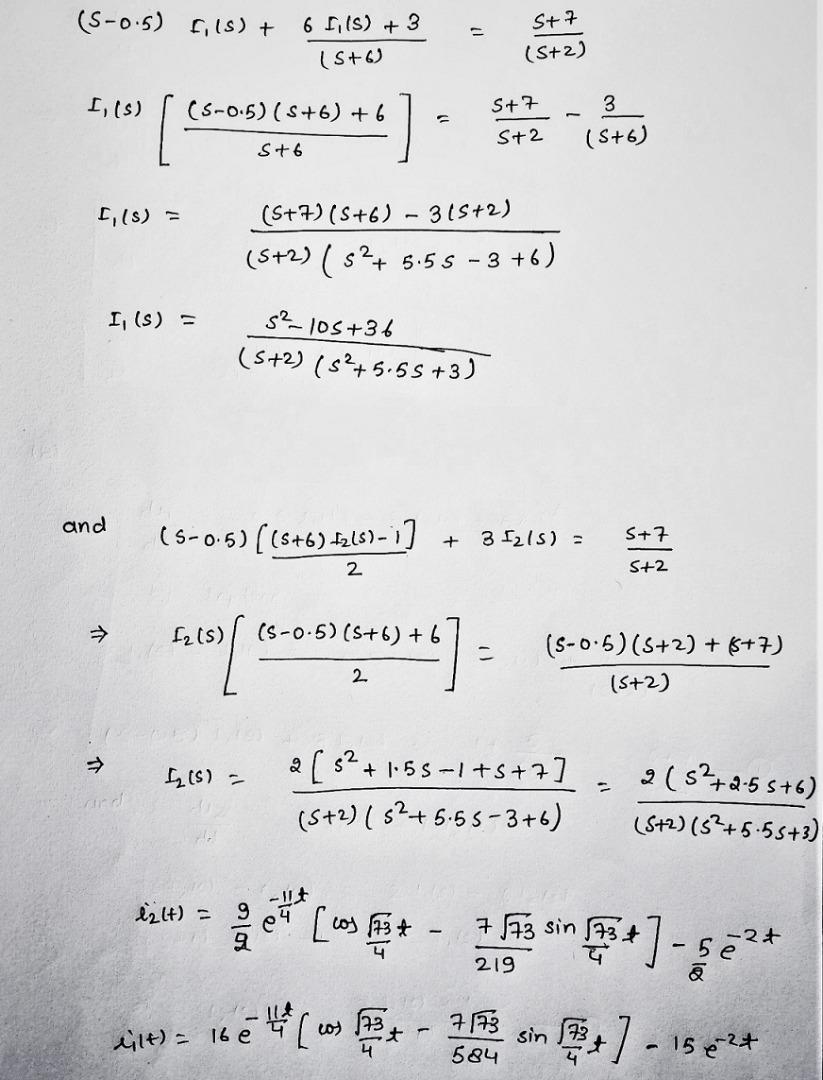 (S-0.5) I₁(S) + (6 I₁(S) + 3)/(S+6) = (S+7)/(S+2)
I₁(S) [ ((S-0.5)(S+6) + 6)/(S+6) ] = (S+7)/(S+2) - 3/(S+6)
I₁(S) = ((S+7)(S+6) - 3(S+2))/((S+2)(S²+ 5.5S - 3 + 6))
I₁(S) = (S² - 10S + 36)/((S+2)(S²+ 5.5S + 3))
and (S-0.5) [(S+6) I₂(S) - 1]/2 + 3 I₂(S) = (S+7)/(S+2)
⇒ I₂(S) [ ((S-0.5)(S+6) + 6)/2 ] = ((S-0.5)(S+2) + (S+7))/(S+2)
⇒ I₂(S) = 2[S² + 1.5S - 1 + S + 7]/((S+2)(S²+ 5.5S - 3 + 6)) = 2(S²+2.5S+6)/((S+2)(S²+5.5S+3))
i₂(t) = 9/2 e^(-11t/4) [cos √73/4 t - 7√73/219 sin √73/4 t] - 5/2 e^(-2t)
i₁(t) = 16 e^(-11t/4) [cos √73/4 t - 7√73/584 sin √73/4 t] - 15 e^(-2t)